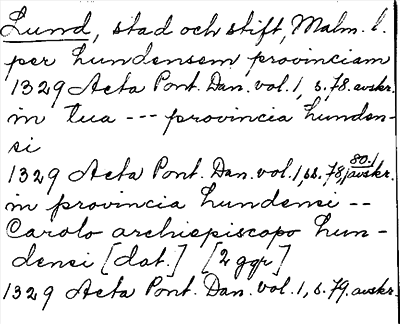 Lund, stad och stift, Malm. l.
per Lundensem provinciam
1329 Acta Pont. Dan. vol. 1, s. 78. avskr.
in tua --- provincia Lunden-
si
1329 Acta Pont. Dan. vol. 1, ss. 78, 80. avskr.
in provincia Lundensi --
Carolo archiepiscopo Lun-
densi [dat.] [2 ggr]
1329 Acta Pont. Dan. vol. 1, s. 79. avskr.